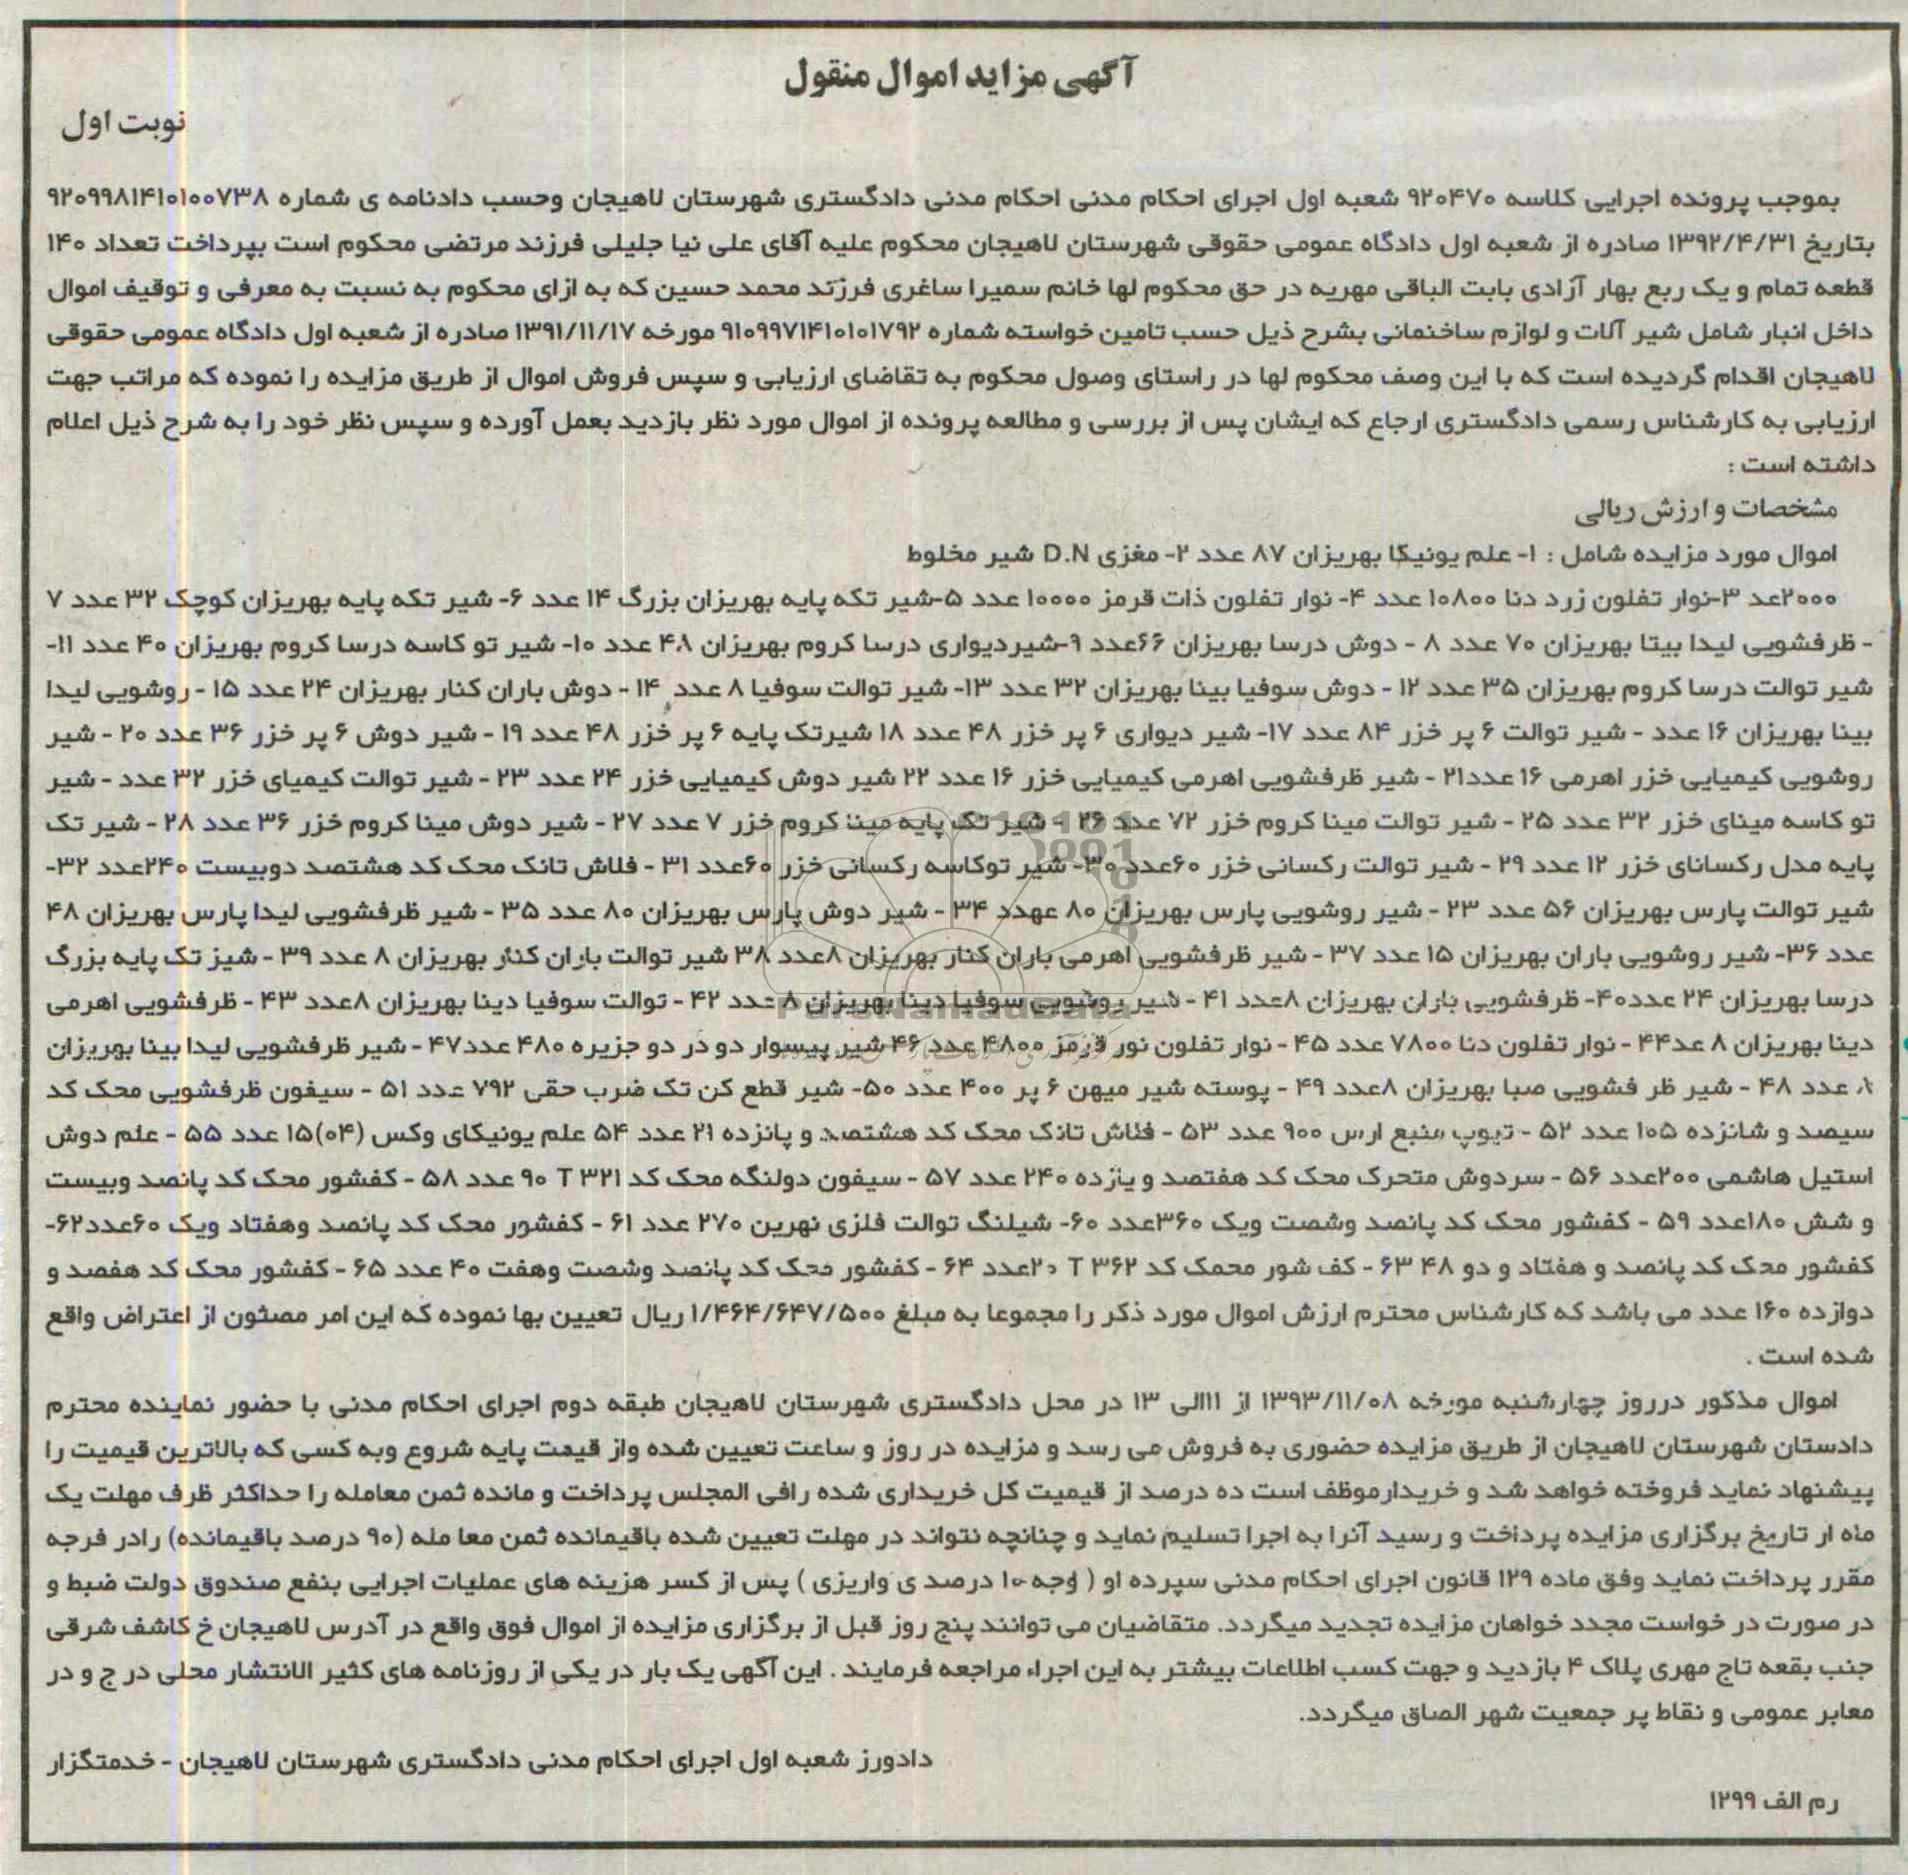 آگهی مزاید اموال منقول
نوبت اول
بموجب پرونده اجرایی کلاسه ۹۲۰۴۷۰ شعبه اول اجرای احکام مدنی احکام مدنی دادگستری شهرستان لاهیجان وحسب دادنامه ی شماره ۹۲۰۹۹۸۱۴۱۰۱۰۰۷۳۸
بتاریخ ۱۳۹۲/۴/۳۱ صادره از شعبه اول دادگاه عمومی حقوقی شهرستان لاهیجان محکوم علیه آقای علی نیا جلیلی فرزند مرتضی محکوم است بپرداخت تعداد ۱۴۰
قطعه تمام و یک ربع بهار آزادی بابت الباقی مهریه در حق محکوم لها خانم سمیرا ساغری فرزند محمد حسین که به ازای محکوم به نسبت به معرفی و توقیف اموال
داخل انبار شامل شیر آلات و لوازم ساختمانی بشرح ذیل حسب تامین خواسته شماره ۹۱۰۹۹۷۱۴۱۰۱۰۱۷۹۲ مورخه ۱۳۹۱/۱۱/۱۷ صادره از شعبه اول دادگاه عمومی حقوقی
لاهیجان اقدام گردیده است که با این وصف محکوم لها در راستای وصول محکوم به تقاضای ارزیابی و سپس فروش اموال از طریق مزایده را نموده که مراتب جهت
ارزیابی به کارشناس رسمی دادگستری ارجاع که ایشان پس از بررسی و مطالعه پرونده از اموال مورد نظر بازدید بعمل آورده و سپس نظر خود را به شرح ذیل اعلام
داشته است :
مشخصات و ارزش ریالی
اموال مورد مزایده شامل : ۱- علم یونیکا بهریزان ۸۷ عدد ۲- مغزی D.N شیر مخلوط
۲۰۰۰عد ۳-نوار تفلون زرد دنا ۱۰۸۰۰ عدد ۴- نوار تفلون ذات قرمز ۱۰۰۰۰ عدد ۵-شیر تکه پایه بهریزان بزرگ ۱۴ عدد ۶- شیر تکه پایه بهریزان کوچک ۳۲ عدد ۷
- ظرفشویی لیدا بیتا بهریزان ۷۰ عدد ۸ - دوش درسا بهریزان ۶۶عدد ۹-شیردیواری درسا کروم بهریزان ۴۸ عدد ۱۰- شیر تو کاسه درسا کروم بهریزان ۴۰ عدد ۱۱-
شیر توالت درسا کروم بهریزان ۳۵ عدد ۱۲ - دوش سوفیا بینا بهریزان ۳۲ عدد ۱۳- شیر توالت سوفیا ۸ عدد ۱۴ - دوش باران کنار بهریزان ۲۴ عدد ۱۵ - روشویی لیدا
بینا بهریزان ۱۶ عدد - شیر توالت ۶ پر خزر ۸۴ عدد ۱۷- شیر دیواری ۶ پر خزر ۴۸ عدد ۱۸ شیرتک پایه ۶ پر خزر ۴۸ عدد ۱۹ - شیر دوش ۶ پر خزر ۳۶ عدد ۲۰ - شیر
روشویی کیمیایی خزر اهرمی ۱۶ عدد۲۱ - شیر ظرفشویی اهرمی کیمیایی خزر ۱۶ عدد ۲۲ شیر دوش کیمیایی خزر ۲۴ عدد ۲۳ - شیر توالت کیمیای خزر ۳۲ عدد - شیر
تو کاسه مینای خزر ۳۲ عدد ۲۵ - شیر توالت مینا کروم خزر ۷۲ عدد ۲۶ - شیر تک پایه مینا کروم خزر ۷ عدد ۲۷ - شیر دوش مینا کروم خزر ۳۶ عدد ۲۸ - شیر تک
پایه مدل رکسانای خزر ۱۲ عدد ۲۹ - شیر توالت رکسانی خزر ۶۰عدد ۳۰- شیر توکاسه رکسانی خزر ۶۰عدد ۳۱ - فلاش تانک محک کد هشتصد دوبیست ۲۴۰عدد ۳۲-
شیر توالت پارس بهریزان ۵۶ عدد ۲۳ - شیر روشویی پارس بهریزان ۸۰ عهدد ۳۴ - شیر دوش پارس بهریزان ۸۰ عدد ۳۵ - شیر ظرفشویی لیدا پارس بهریزان ۴۸
عدد ۳۶- شیر روشویی باران بهریزان ۱۵ عدد ۳۷ - شیر ظرفشویی اهرمی باران کنار بهریزان ۸عدد ۳۸ شیر توالت باران کنار بهریزان ۸ عدد ۳۹ - شیز تک پایه بزرگ
درسا بهریزان ۲۴ عدد۴۰- ظرفشویی باران بهریزان ۸عدد ۴۱ - شیر روشویی سوفیا دینا بهریزان ۸ عدد ۴۲ - توالت سوفیا دینا بهریزان ۸عدد ۴۳ - ظرفشویی اهرمی
دینا بهریزان ۸ عد۴۴ - نوار تفلون دنا ۷۸۰۰ عدد ۴۵ - نوار تفلون نور قرمز ۴۸۰۰ عدد ۴۶ شیر پیسوار دو در دو جزیره ۴۸۰ عدد۴۷ - شیر ظرفشویی لیدا بینا بهریزان
۸ عدد ۴۸ - شیر ظر فشویی صبا بهریزان ۸عدد ۴۹ - پوسته شیر میهن ۶ پر ۴۰۰ عدد ۵۰- شیر قطع کن تک ضرب حقی ۷۹۲ عدد ۵۱ - سیفون ظرفشویی محک کد
سیصد و شانزده ۱۰۵ عدد ۵۲ - تیوپ منبع ارس ۹۰۰ عدد ۵۳ - فلاش تانک محک کد هشتصد و پانزده ۲۱ عدد ۵۴ علم یونیکای وکس (۰۴)۱۵ عدد ۵۵ - علم دوش
استیل هاشمی ۲۰۰عدد ۵۶ - سردوش متحرک محک کد هفتصد و یازده ۲۴۰ عدد ۵۷ - سیفون دولنگه محک کد ۳۲۱ T ۹۰ عدد ۵۸ - کفشور محک کد پانصد وبیست
و شش ۱۸۰عدد ۵۹ - کفشور محک کد پانصد وشصت ویک ۳۶۰عدد ۶۰- شیلنگ توالت فلزی نهرین ۲۷۰ عدد ۶۱ - کفشور محک کد پانصد وهفتاد ویک ۶۰عدد۶۲-
کفشور محک کد پانصد و هفتاد و دو ۴۸ ۶۳ - کف شور محمک کد ۳۶۲ T ۲۰عدد ۶۴ - کفشور محک کد پانصد وشصت وهفت ۴۰ عدد ۶۵ - کفشور محک کد هفصد و
دوازده ۱۶۰ عدد می باشد که کارشناس محترم ارزش اموال مورد ذکر را مجموعا به مبلغ ۱/۴۶۴/۶۴۷/۵۰۰ ریال تعیین بها نموده که این امر مصئون از اعتراض واقع
شده است .
اموال مذکور درروز چهارشنبه مورخه ۱۳۹۳/۱۱/۰۸ از ۱۱الی ۱۳ در محل دادگستری شهرستان لاهیجان طبقه دوم اجرای احکام مدنی با حضور نماینده محترم
دادستان شهرستان لاهیجان از طریق مزایده حضوری به فروش می رسد و مزایده در روز و ساعت تعیین شده واز قیمت پایه شروع وبه کسی که بالاترین قیمیت را
پیشنهاد نماید فروخته خواهد شد و خریدارموظف است ده درصد از قیمیت کل خریداری شده رافی المجلس پرداخت و مانده ثمن معامله را حداکثر ظرف مهلت یک
ماه ار تاریخ برگزاری مزایده پرداخت و رسید آنرا به اجرا تسلیم نماید و چنانچه نتواند در مهلت تعیین شده باقیمانده ثمن معا مله (۹۰ درصد باقیمانده) رادر فرجه
مقرر پرداخت نماید وفق ماده ۱۲۹ قانون اجرای احکام مدنی سپرده او ( وجه ۱۰ درصد ی واریزی ) پس از کسر هزینه های عملیات اجرایی بنفع صندوق دولت ضبط و
در صورت در خواست مجدد خواهان مزایده تجدید میگردد. متقاضیان می توانند پنج روز قبل از برگزاری مزایده از اموال فوق واقع در آدرس لاهیجان خ کاشف شرقی
جنب بقعه تاج مهری پلاک ۴ بازدید و جهت کسب اطلاعات بیشتر به این اجراء مراجعه فرمایند . این آگهی یک بار در یکی از روزنامه های کثیر الانتشار محلی در ج و در
معابر عمومی و نقاط پر جمعیت شهر الصاق میگردد.
دادورز شعبه اول اجرای احکام مدنی دادگستری شهرستان لاهیجان - خدمتگزار
رم الف ۱۲۹۹
ParsNamadData